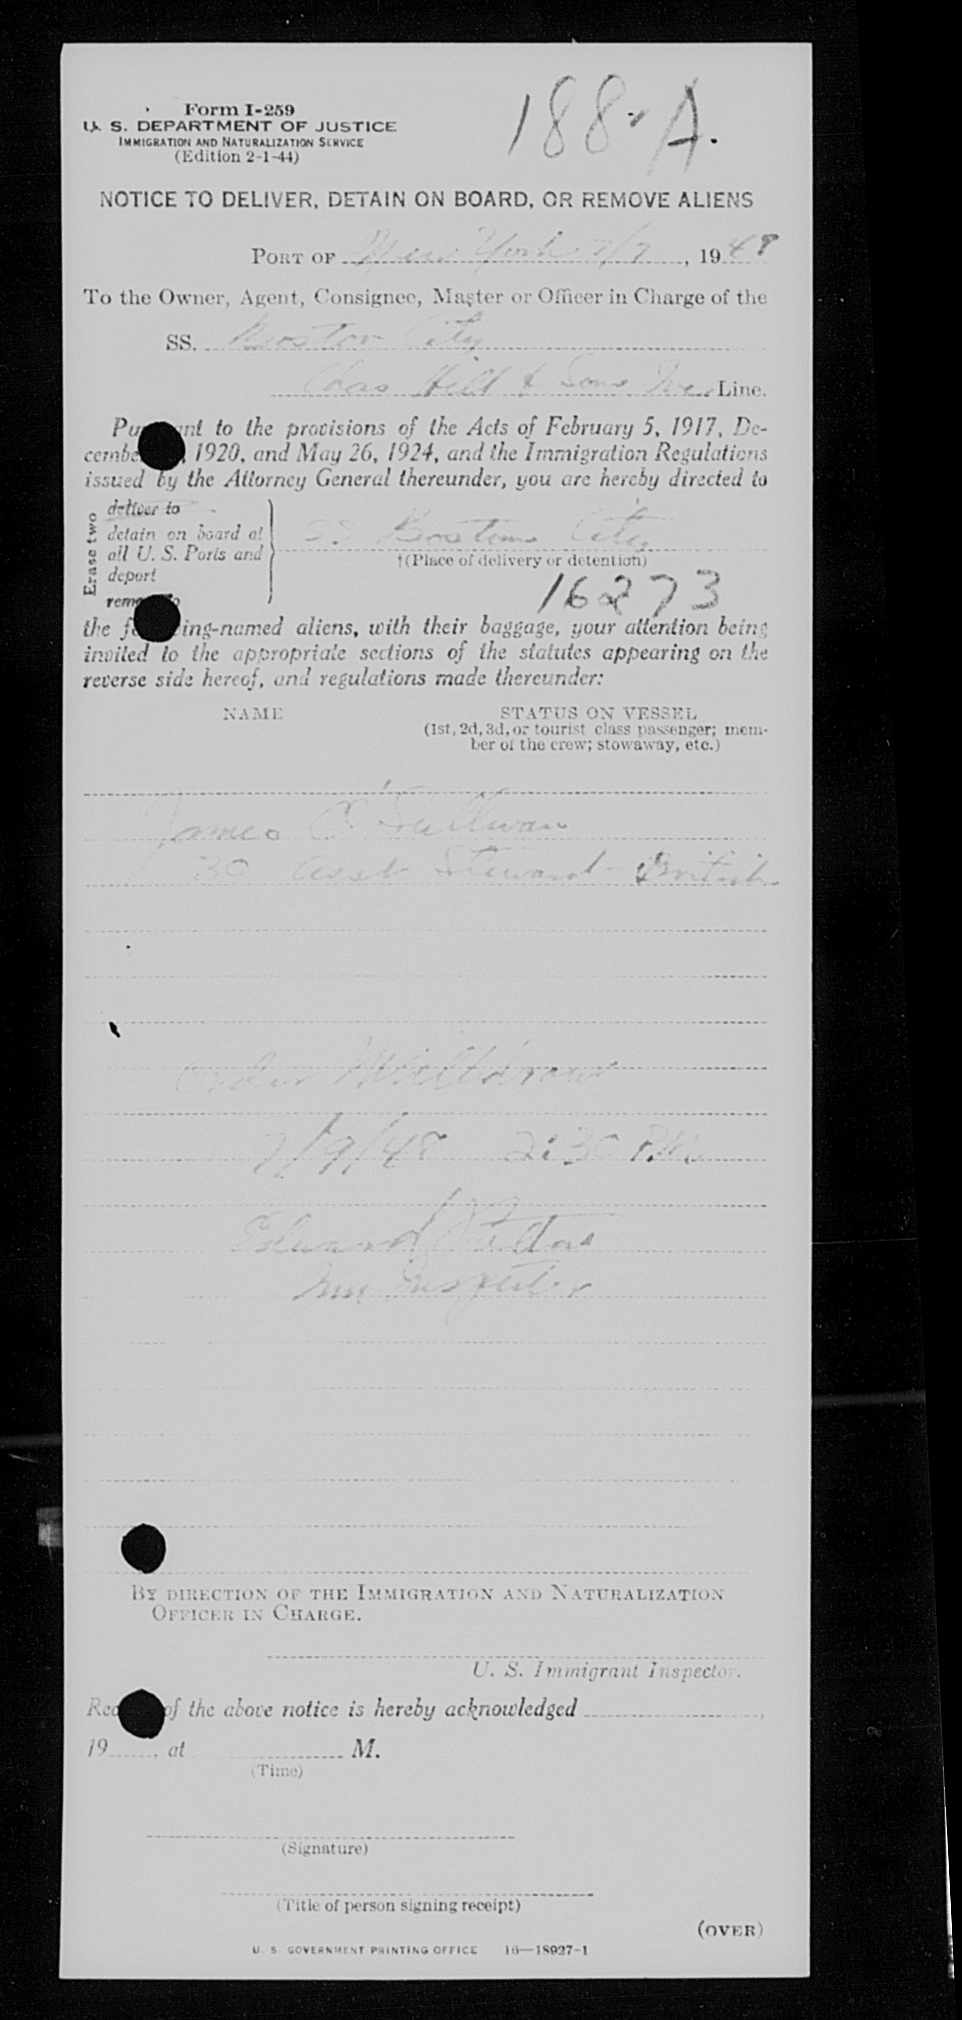 Form I-259
U. S. DEPARTMENT OF JUSTICE
IMMIGRATION AND NATURALIZATION SERVICE
(Edition 2-1-44)
188-A.
NOTICE TO DELIVER, DETAIN ON BOARD, OR REMOVE ALIENS
PORT OF New York 7/7, 1948
To the Owner, Agent, Consignee, Master or Officer in Charge of the
SS. Boston City
Chas Hill & Sons Inc. Line.
Pu nt to the provisions of the Acts of February 5, 1917, De-
cembe , 1920, and May 26, 1924, and the Immigration Regulations
issued by the Attorney General thereunder, you are hereby directed to
Erase two
deliver to
detain on board at
all U. S. Ports and
deport
remo o
SS Boston City
†(Place of delivery or detention)
16273
the f ing-named aliens, with their baggage, your attention being
invited to the appropriate sections of the statutes appearing on the
reverse side hereof, and regulations made thereunder:
NAME
STATUS ON VESSEL
(1st, 2d, 3d, or tourist class passenger; mem-
ber of the crew; stowaway, etc.)
James O'Sullivan
30 Asst Steward British
Order Withdrawn
7/9/48 2:30 P.M.
Edward
Imm Inspector
BY DIRECTION OF THE IMMIGRATION AND NATURALIZATION
OFFICER IN CHARGE.
U. S. Immigrant Inspector.
Rec of the above notice is hereby acknowledged ,
19 , at M.
(Time)
(Signature)
(Title of person signing receipt)
(OVER)
U. S. GOVERNMENT PRINTING OFFICE 16—18927-1